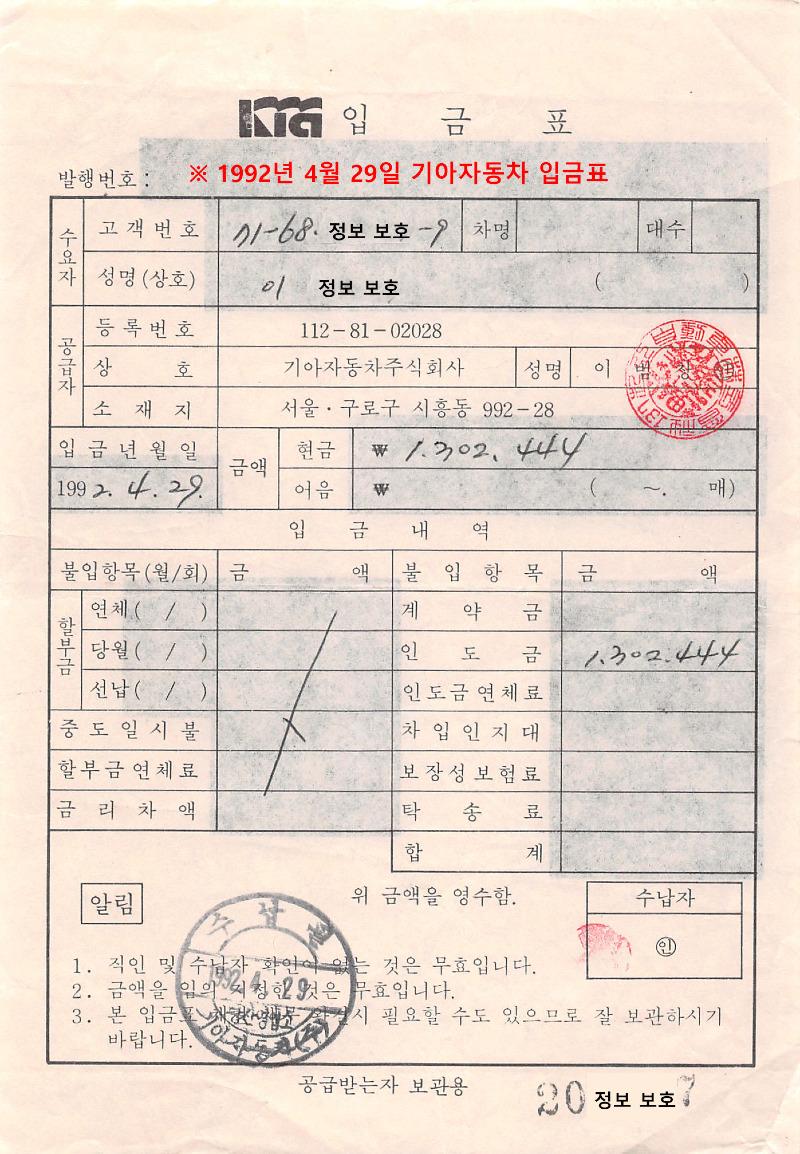 KIA 입 금 표
발행번호 :
※ 1992년 4월 29일 기아자동차 입금표
수요자
고 객 번 호 71-68. 정보 보호 -9 차명 대수
성명(상호) 이 정보 보호 ( )
공급자
등 록 번 호 112-81-02028
상 호 기아자동차주식회사 성명 이 범 창
소 재 지 서울·구로구 시흥동 992-28
입 금 년 월 일 금액 현금 ₩ 1.302.444
1992. 4. 29. 어음 ₩ ( ~. 매)
입 금 내 역
불입항목(월/회) 금 액 불 입 항 목 금 액
할부금
연체( / ) 계 약 금
당월( / ) 인 도 금 1.302.444
선납( / ) 인도금연체료
중 도 일 시 불 차 입 인 지 대
할부금연체료 보장성보험료
금 리 차 액 탁 송 료
합 계
알림 위 금액을 영수함. 수납자
인
수 납
1992. 4. 29
기아자동차(주)
1. 직인 및 수납자 확인이 없는 것은 무효입니다.
2. 금액을 임의 정정한 것은 무효입니다.
3. 본 입금표 시 필요할 수도 있으므로 잘 보관하시기
바랍니다.
공급받는자 보관용
20 정보 보호 7